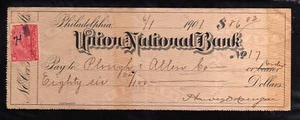 Philadelphia, 6/1 1901 $86.02
Union National Bank
No 17
Pay to Plough & Allen Co or bearer
Eighty six 02/100 Dollars